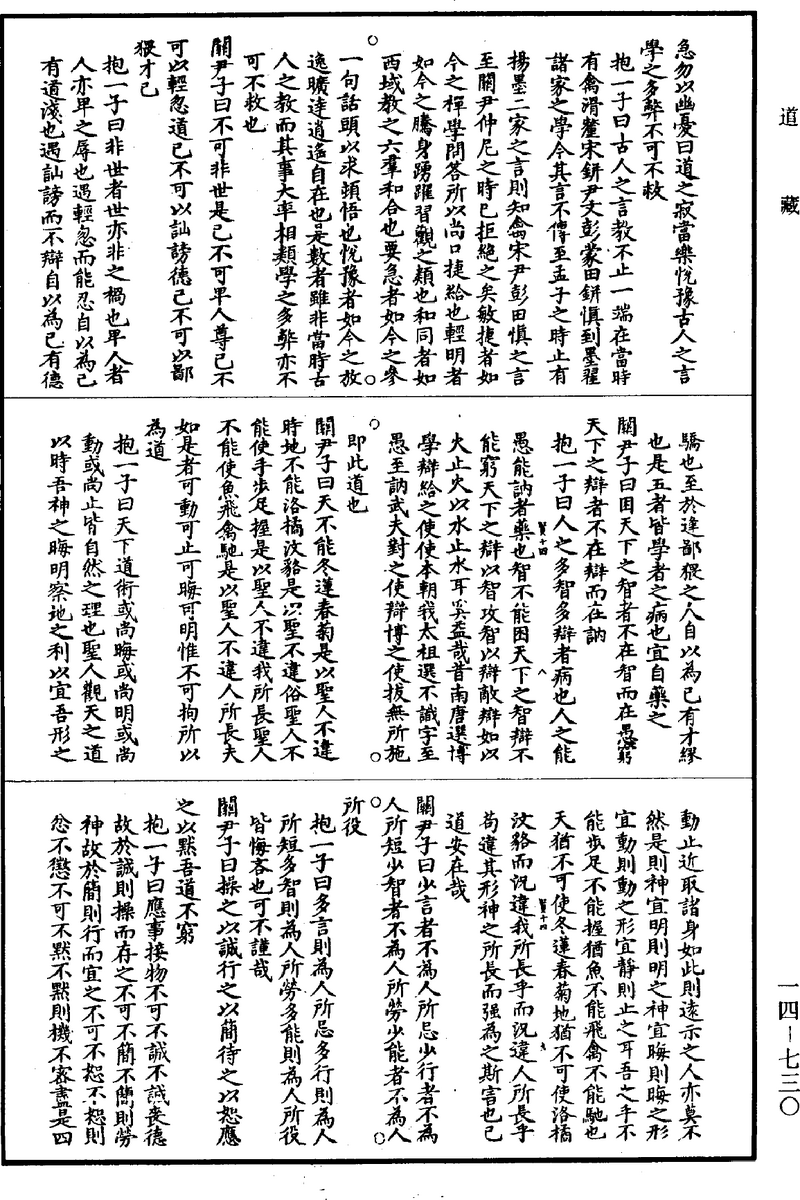 道藏
急勿以幽憂曰道之寂當樂恱豫古人之言
學之多弊不可不救
抱一子曰古人之言教不止一端在當時
有禽滑釐宋鈃尹文彭蒙田駢慎到墨翟
諸家之學今其言不傳至孟子之時止有
揚墨二家之言則知禽宋尹彭田慎之言
至關尹仲尼之時已拒絶之矣敏捷者如
今之禪學問答所以尚口捷給也輕明者
如今之騰身踴躍習觀之類也和同者如
西域教之六羣和合也要急者如今之參
一句話頭以求頓悟也恱豫者如今之放
逸曠達逍遙自在也是數者雖非當時古
人之教而其事大率相類學之多弊亦不
可不救也
關尹子曰不可非世是已不可卑人尊已不
可以輕忽道已不可以訕謗德已不可以鄙
猥才已
抱一子曰非世者世亦非之禍也卑人者
人亦卑之辱也遇輕忽而能忍自以為已
有道淺也遇訕謗而不辯自以為已有德
驕也至於逢鄙猥之人自以為已有才繆
也是五者皆學者之病也宜自藥之
關尹子曰困天下之智者不在智而在愚窮
天下之辯者不在辯而在訥
抱一子曰人之多智多辯者病也人之能
愚能訥者藥也智不能困天下之智辯不
能窮天下之辯以智攻智以辯敵辯如以
火止火以水止水耳奚益哉昔南唐選博
學辯給之使使本朝我太祖選不識字至
愚至訥武夫對之使辯博之使拔無所施
即此道也
關尹子曰天不能冬蓮春菊是以聖人不違
時地不能洛橘汶貉是以聖不違俗聖人不
能使手步足握是以聖人不違我所長聖人
不能使魚飛禽馳是以聖人不違人所長夫
如是者可動可止可晦可明惟不可拘所以
為道
抱一子曰天下道術或尚晦或尚明或尚
動或尚止皆自然之理也聖人觀天之道
以時吾神之晦明察地之利以宜吾形之
動止近取諸身如此則遠示之人亦莫不
然是則神宜明則明之神宜晦則晦之形
宜動則動之形宜靜則止之耳吾之手不
能步足不能握猶魚不能飛禽不能馳也
天猶不可使冬蓮春菊地猶不可使洛橘
汶貉而況違我所長乎而況違人所長乎
苟違其形神之所長而强為之斯害也已
道安在哉
關尹子曰少言者不為人所忌少行者不為
人所短少智者不為人所勞少能者不為人
所役
抱一子曰多言則為人所忌多行則為人
所短多智則為人所勞多能則為人所役
皆悔吝也可不謹哉
關尹子曰操之以誠行之以簡待之以恕應
之以默吾道不窮
抱一子曰應事接物不可不誠不誠喪德
故於誠則操而存之不可不簡不簡則勞
神故於簡則行而宜之不可不恕不恕則
忿不懲不可不默不默則機不密盡是四
一四－七三〇